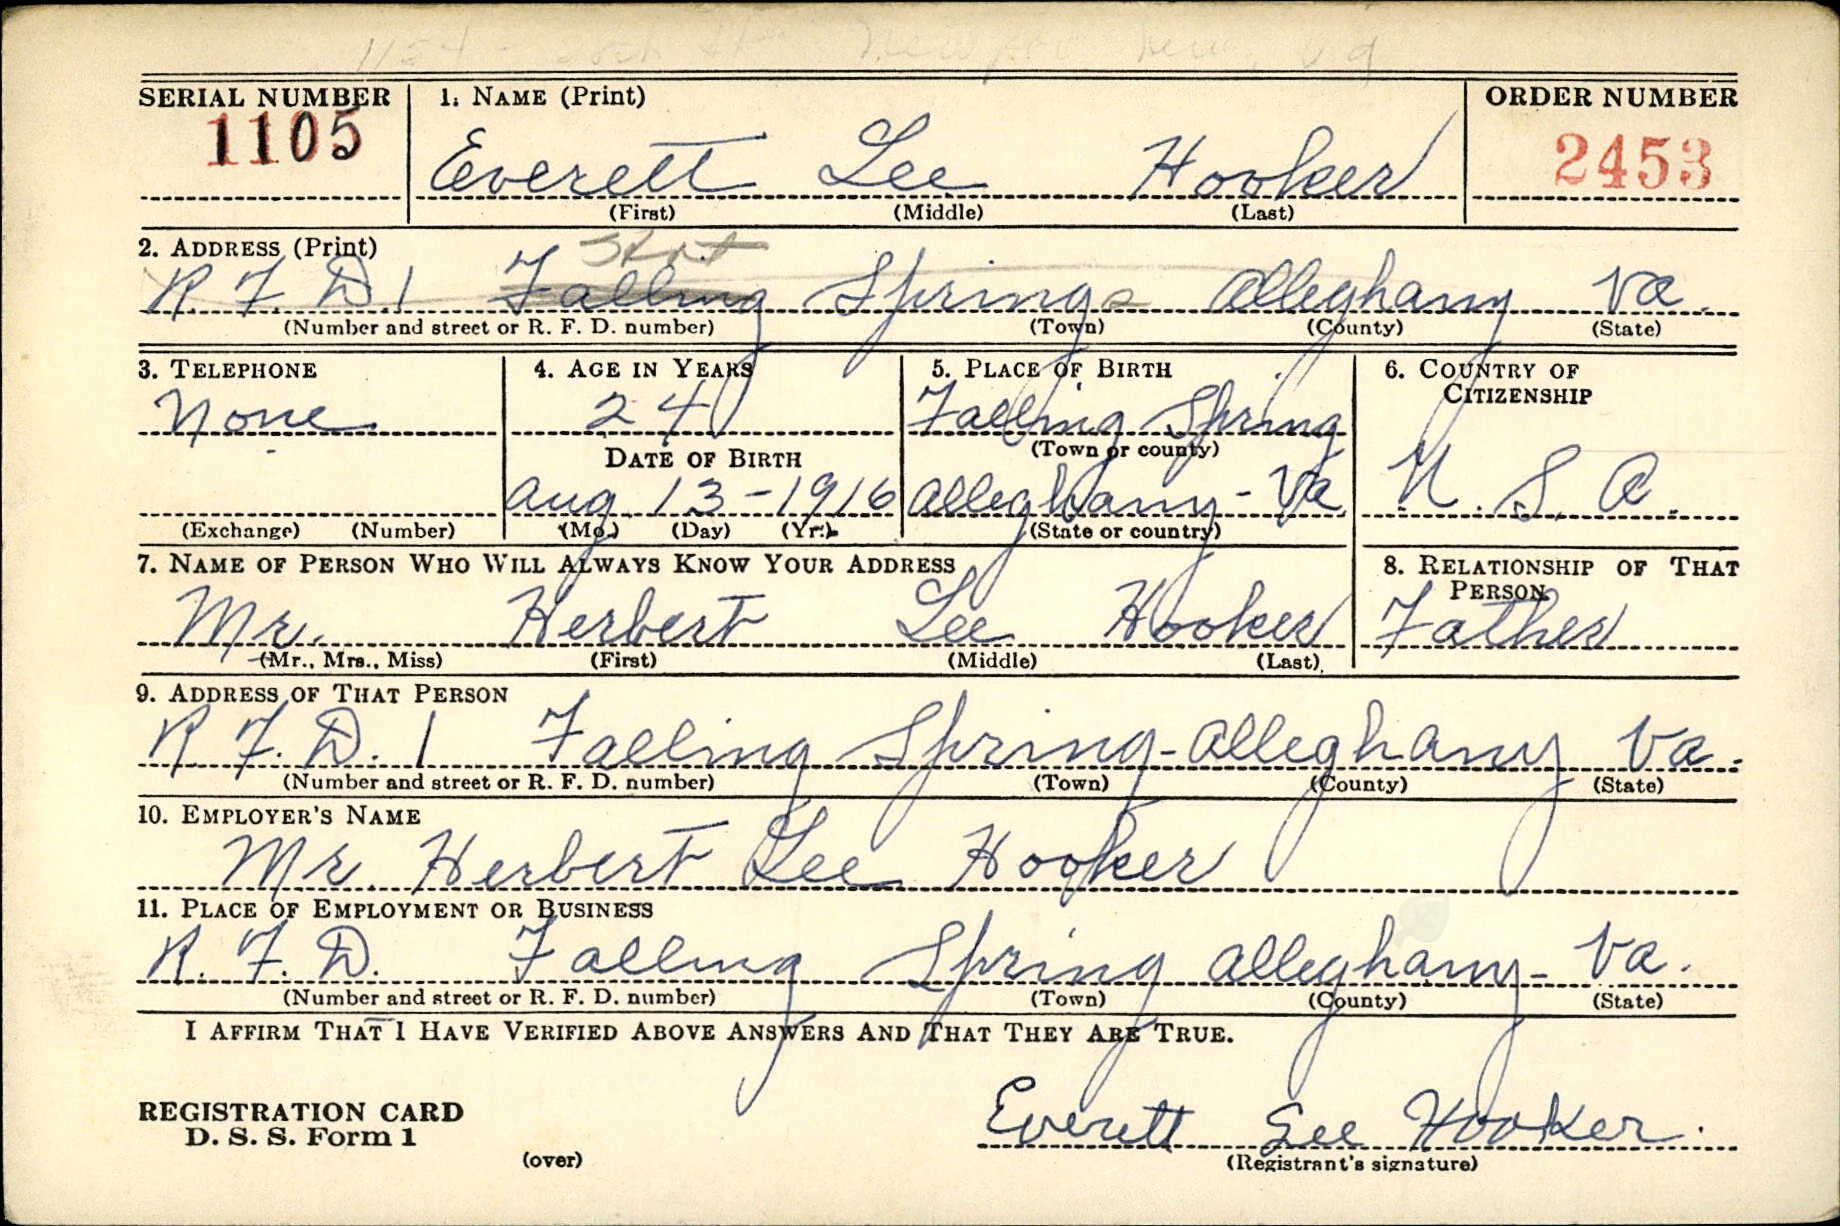 1154 Newport News, Va
SERIAL NUMBER 1. NAME (Print) ORDER NUMBER
1105 Everett Lee Hooker 2453
(First) (Middle) (Last)
2. ADDRESS (Print) Hot
R. F. D. 1 Falling Springs Alleghany Va.
(Number and street or R. F. D. number) (Town) (County) (State)
3. TELEPHONE 4. AGE IN YEARS 5. PLACE OF BIRTH 6. COUNTRY OF CITIZENSHIP
None 24 Falling Spring
DATE OF BIRTH (Town or county)
Aug. 13-1916 Alleghany-Va. U. S. A.
(Exchange) (Number) (Mo.) (Day) (Yr.) (State or country)
7. NAME OF PERSON WHO WILL ALWAYS KNOW YOUR ADDRESS 8. RELATIONSHIP OF THAT PERSON
Mr. Herbert Lee Hooker Father
(Mr., Mrs., Miss) (First) (Middle) (Last)
9. ADDRESS OF THAT PERSON
R. F. D. 1 Falling Spring-Alleghany Va.
(Number and street or R. F. D. number) (Town) (County) (State)
10. EMPLOYER'S NAME
Mr. Herbert Lee Hooker
11. PLACE OF EMPLOYMENT OR BUSINESS
R. F. D. Falling Spring Alleghany-Va.
(Number and street or R. F. D. number) (Town) (County) (State)
I AFFIRM THAT I HAVE VERIFIED ABOVE ANSWERS AND THAT THEY ARE TRUE.
REGISTRATION CARD
D. S. S. Form 1 Everett Lee Hooker.
(over) (Registrant's signature)